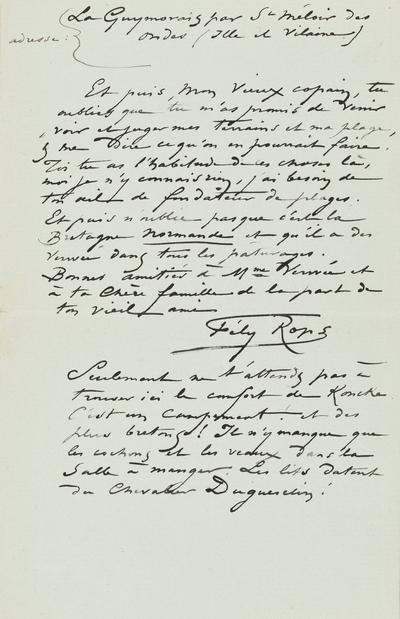 (La Guymorais par St Méloir des
ondes (Ille et Vilaine)
adresse :
Et puis, Mon Vieux copain, tu
oublies que tu m'as promis de venir
voir et juger mes terrains et ma plage,
& me dire ce qu'on en pourrait faire.
Toi tu as l'habitude de ces choses là,
moi je n'y connais rien, j'ai besoin de
ton œil de fondateur de plages.
Et puis n'oublie pas que c'est la
Bretagne Normande et qu'il a des
Vervée dans tous les pâturages.
Bonnes amitiés à Mme Vervée et
à ta chère famille de la part de
ton vieil ami
Fély Rops
Seulement ne t'attends pas à
trouver ici le confort de Knocke
C'est un campement ! et des
plus bretons ! Il n'y manque que
les cochons et les veaux dans la
Salle à manger. Les lits datent
du Chevalier Duguesclin !